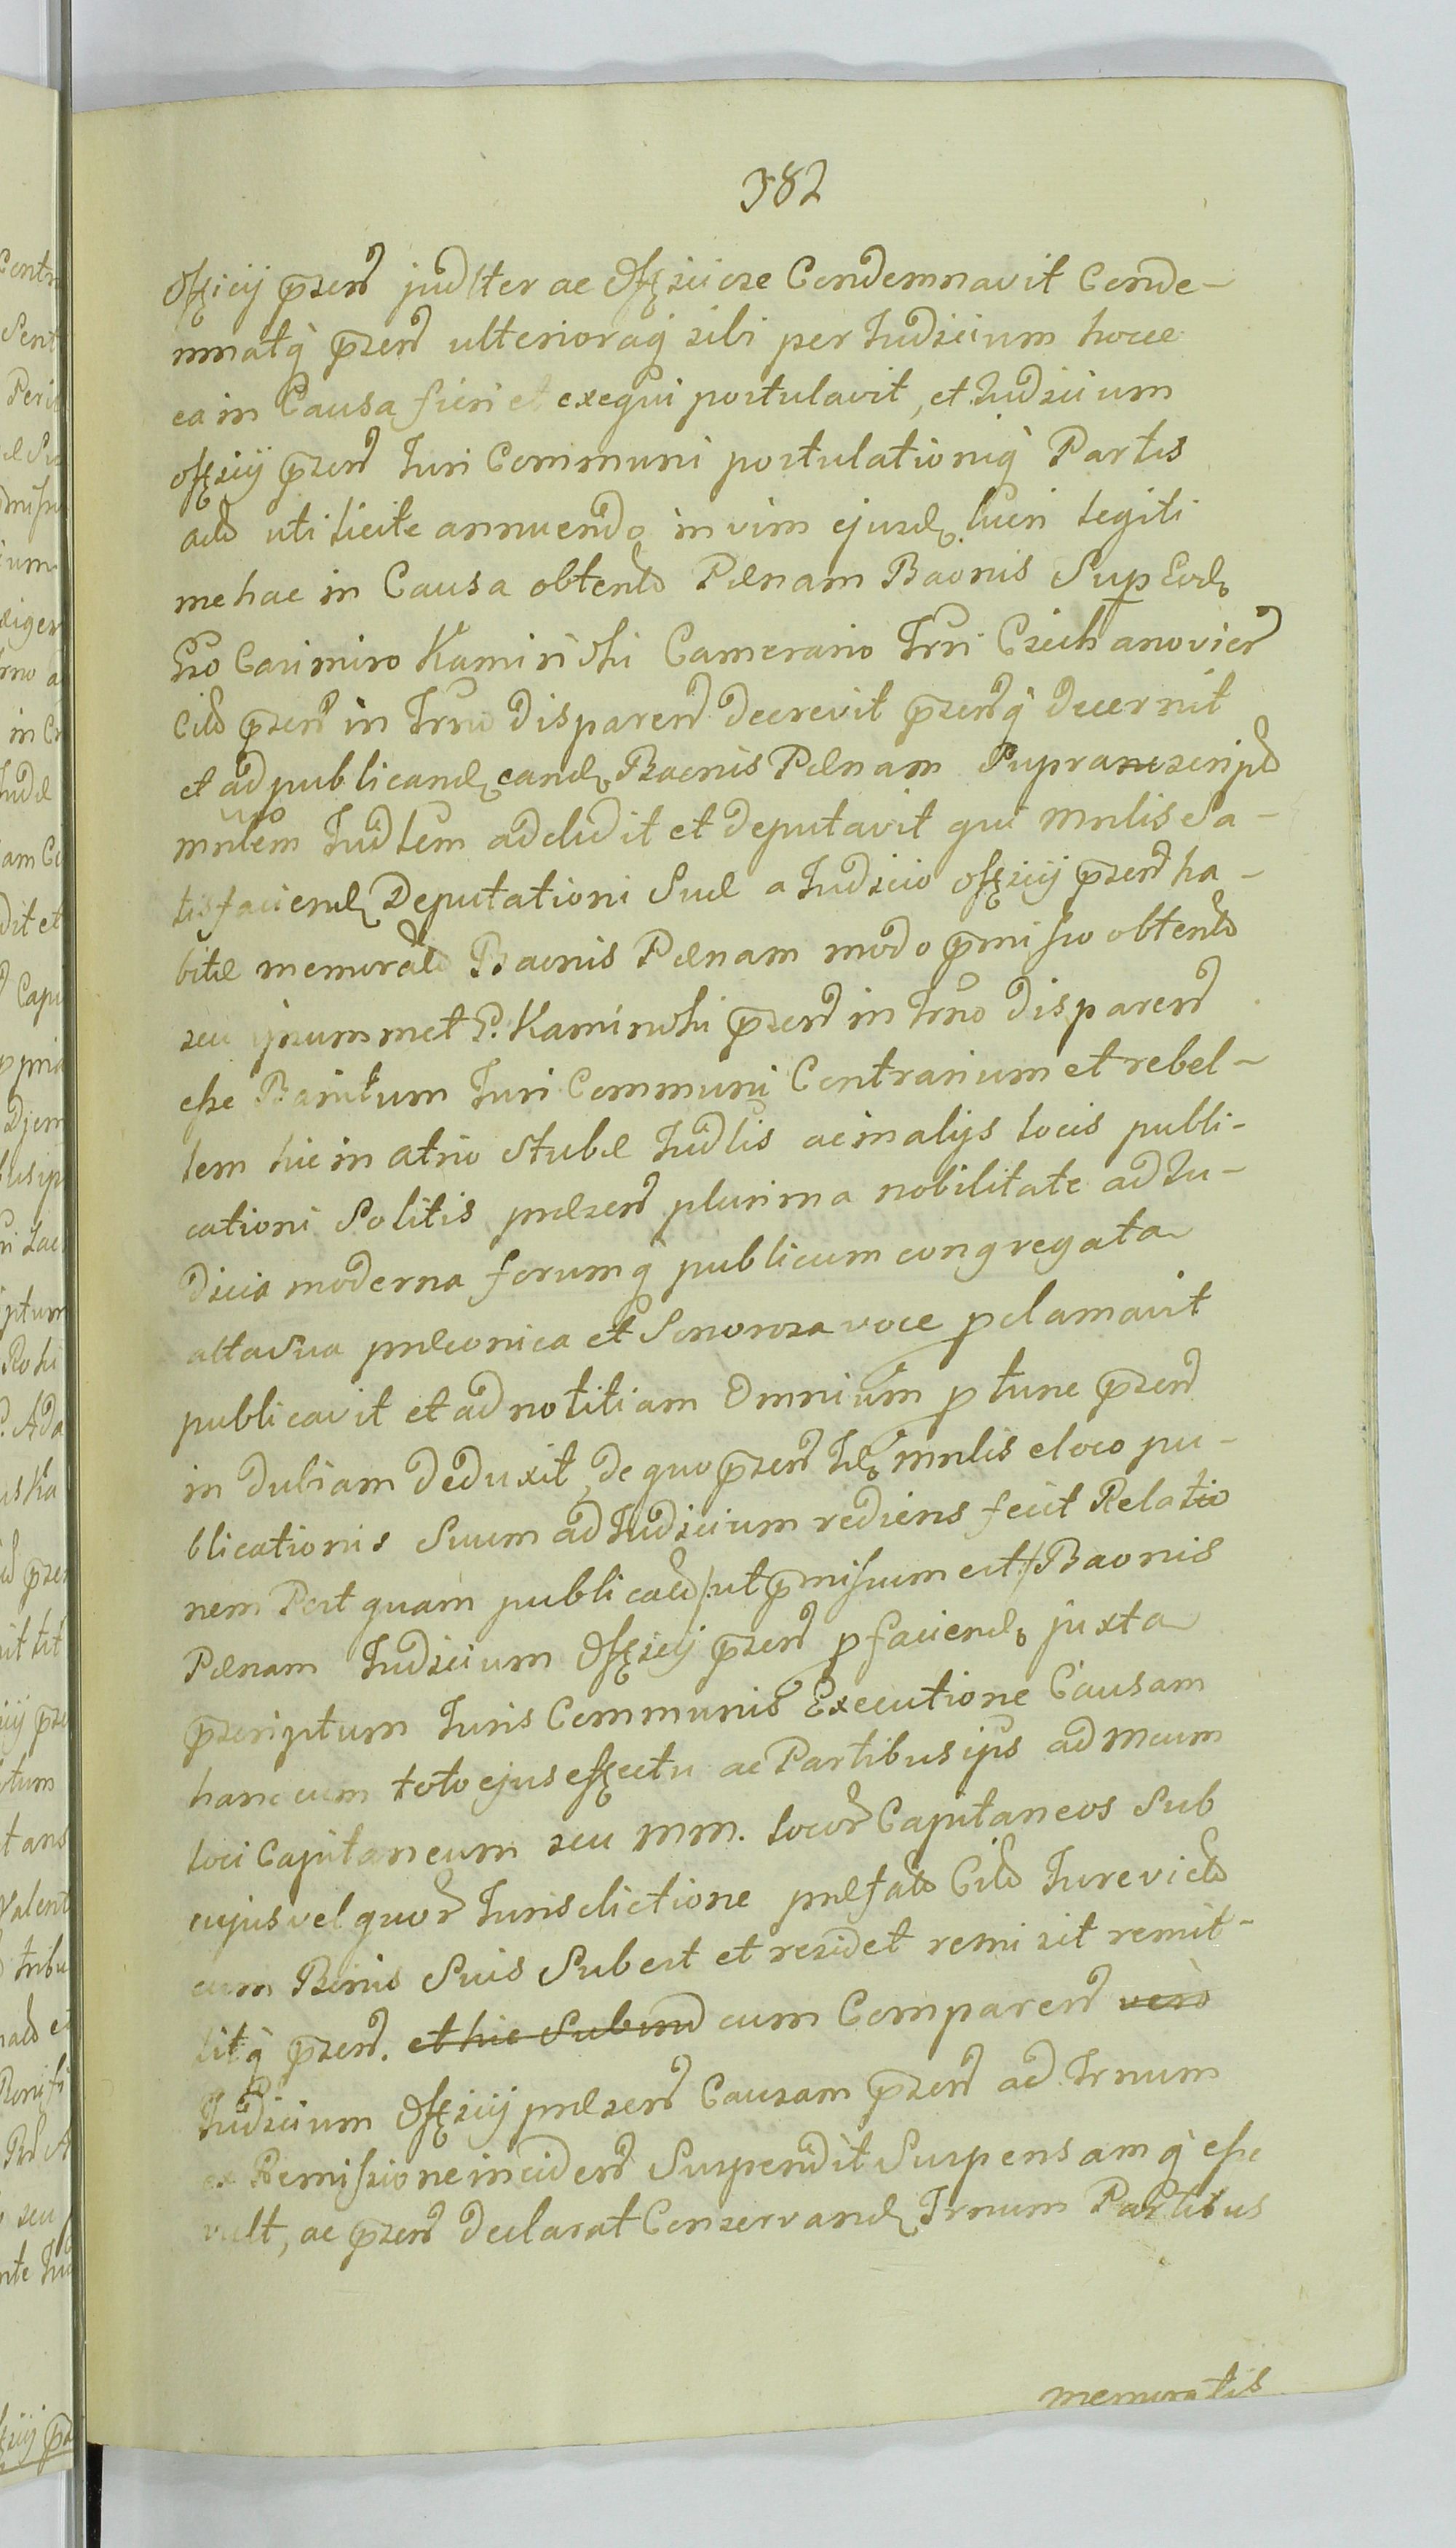 382
Offcij pzen judlter ac Offciose Condemnavit Conde-
mnatq pzen ulterioraq sibi per Judicium hocce
ea in Causa fieri et exequi postulavit, et Judicium
offcij pzen Juri Communi postulationiq Partis
acto uti licite annuendo in vim ejusd lucri legiti
me hac in Causa obtento Pænam Baonis Sup Eod
Gso Casimiro Kamiński Camerario Trri Ciechanovien
Cito pzen in Trno disparen decrevit pzenq decernit
et ad publicand eand Baonis Pænam Supra scripto
mnlem Judlem addidit et deputavit qui Mnlis Sa-
tisfaciend Deputationi Suæ a Judicio offcij pzen ha-
bitæ memorato Baonis Pænam modo pmisso obtento
seu ipsummet G. Kaminski pzen in trno disparen
esse Banitum Juri Communi Contrarium et rebel-
lem hic in atrio Stubæ Judlis ac in alijs locis publi-
cationi Solitis præsen plurima nobilitate ad Ju-
dicia moderna forumq publicum congregata
alta sua præconica et Sonorosa voce pclamavit
publicavit et ad notitiam Omnium p tunc pzen
in dubiam deduxit, de quo pzen Id mnlis e loco pu-
blicationis Suum ad Judicium rediens fecit Relatio
nem Post quam publicato /: ut pmissum est :/ Baonis
Pænam Judicium Offcij pzen p faciend juxta
pscriptum Juris Communis Executione Causam
hanc cum toto ejus effectu ac Partibus ips ad Mcum
loci Capitaneum seu MM. locor Capitaneos Sub
cujus vel quor Jurisdictione præfato Cito Jurevicto
cum Bonis Suis Subest et residet remisit remit-
titq pzen. et hic Subind cum Comparen vero
Judicium Offcij præsen Causam pzen ad Trnum
ex Remissione inciden Suspendit Suspensamq esse
vult, ac pzen declarat Conservand Trnum Partibus
memoratis